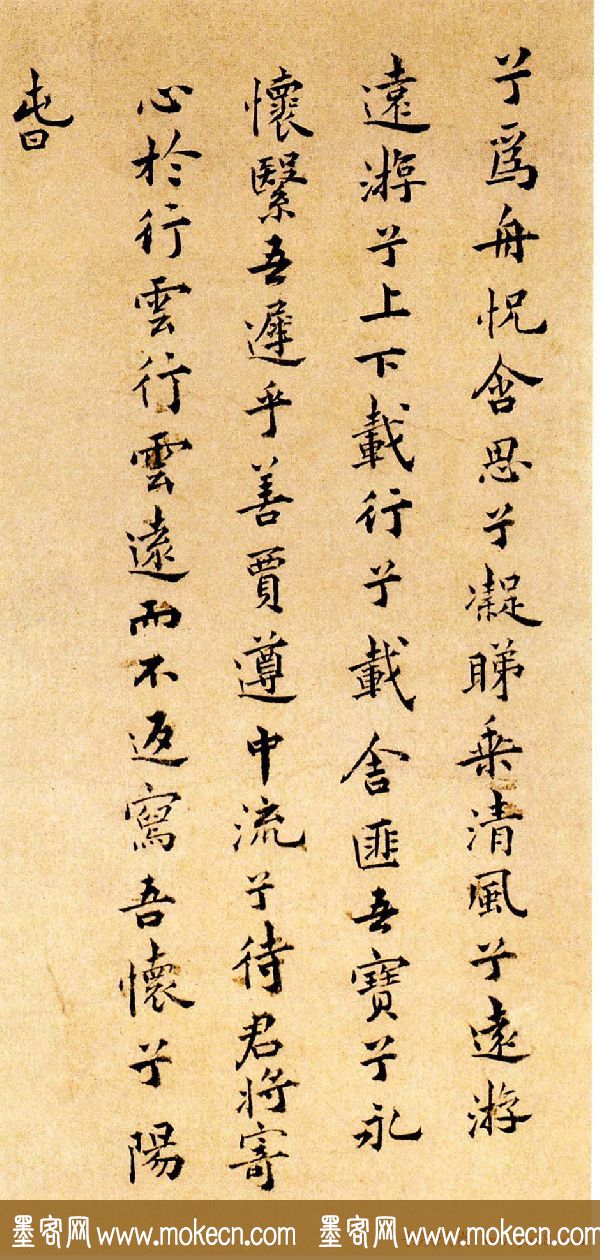 兮爲舟怳含思兮凝睇乘清風兮遠游
遠游兮上下載行兮載舍匪吾寶兮永
懷緊吾遲乎善賈遵中流兮待君將寄
心於行雲行雲遠而不返寫吾懷兮陽
春
墨客网 www.mokecn.com 墨客网 www.mokecn.com